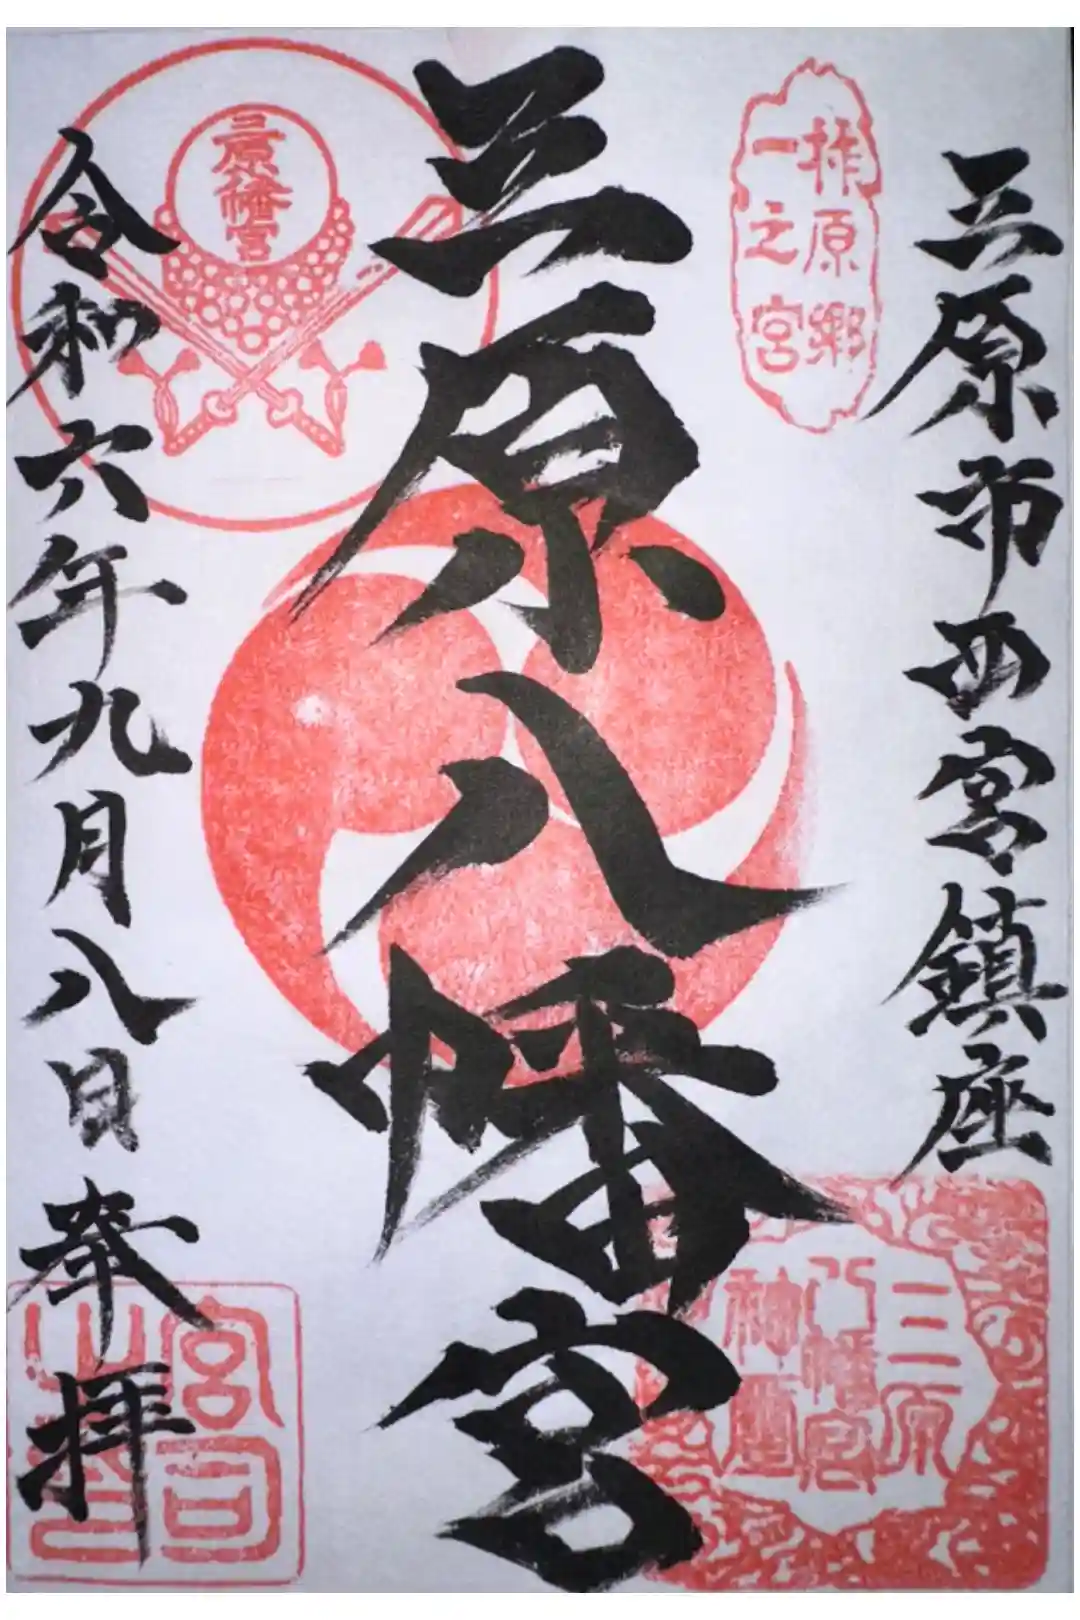 三原市西宮鎮座
柞原郷
一之宮
三原八幡宮
三原
八幡宮
神璽
三原八幡宮
令和六年九月八日奉拝
宮司
之印